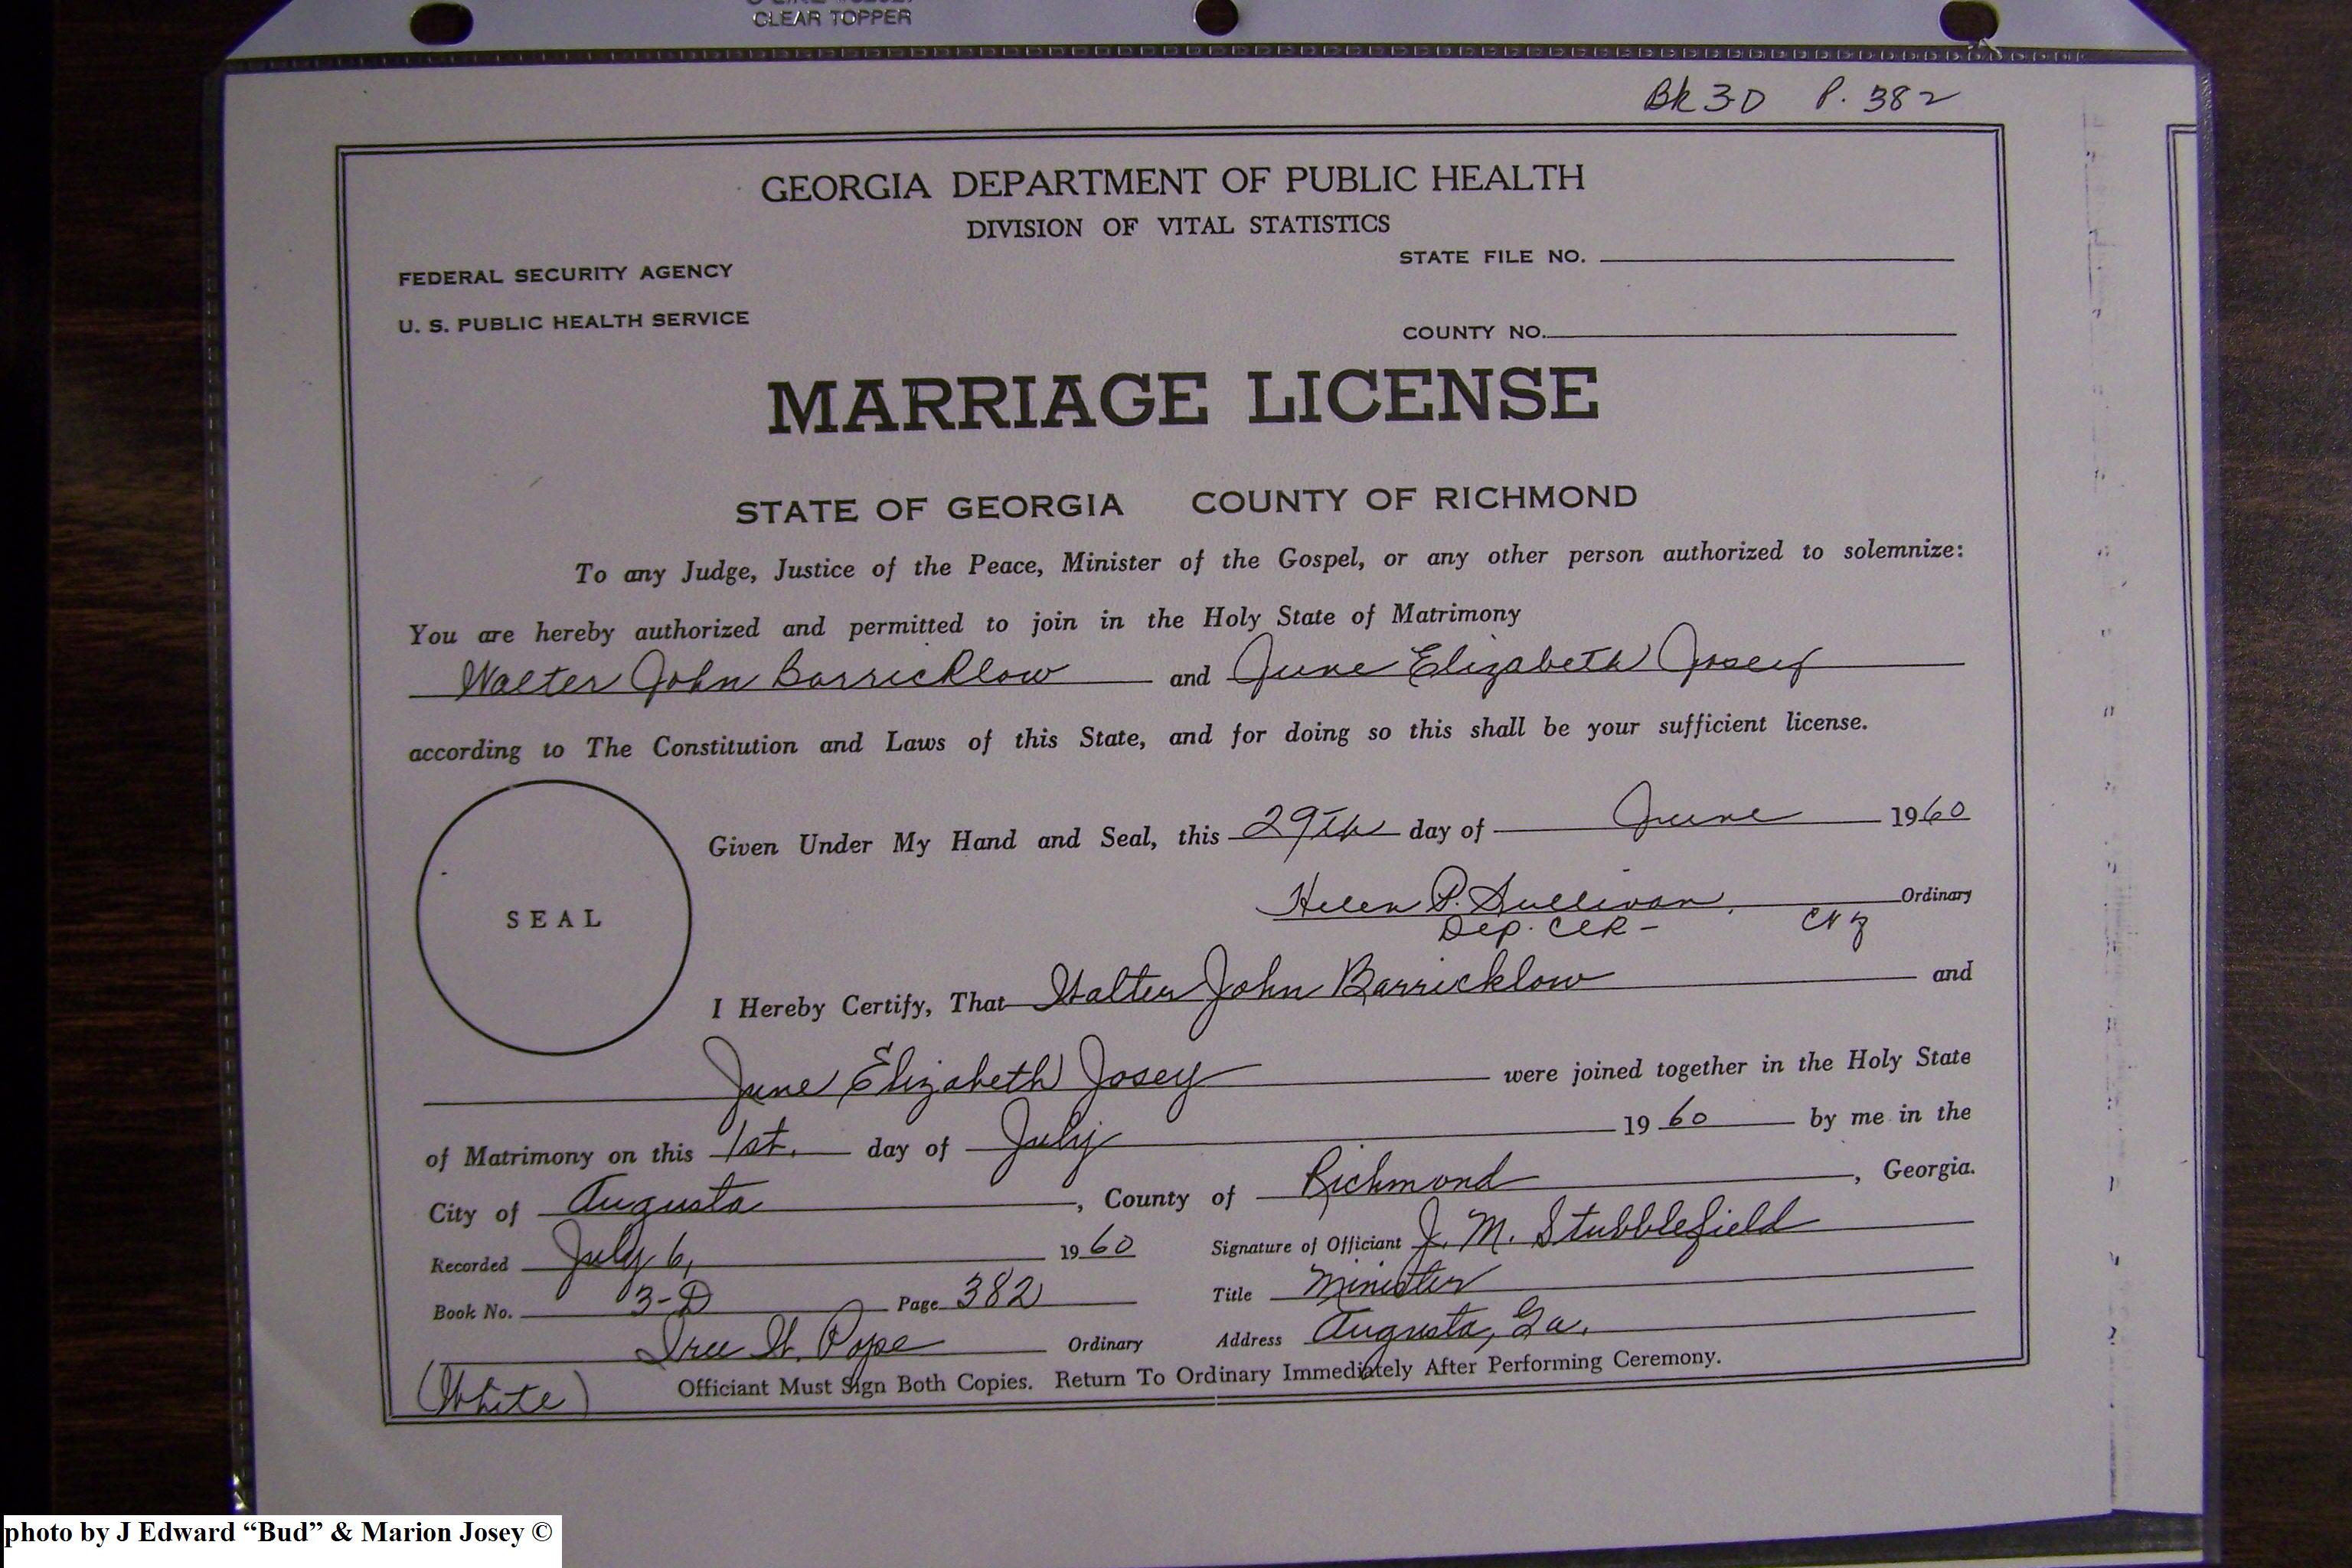 CLEAR TOPPER
Bk 3D P. 382
GEORGIA DEPARTMENT OF PUBLIC HEALTH
DIVISION OF VITAL STATISTICS
STATE FILE NO.
FEDERAL SECURITY AGENCY
U. S. PUBLIC HEALTH SERVICE
COUNTY NO.
MARRIAGE LICENSE
STATE OF GEORGIA COUNTY OF RICHMOND
To any Judge, Justice of the Peace, Minister of the Gospel, or any other person authorized to solemnize:
You are hereby authorized and permitted to join in the Holy State of Matrimony
Walter John Barricklow and June Elizabeth Josey
according to The Constitution and Laws of this State, and for doing so this shall be your sufficient license.
Given Under My Hand and Seal, this 29th day of June 1960
SEAL
Helen P. Sullivan, Ordinary
Dep. Clk-
I Hereby Certify, That Walter John Barricklow and
June Elizabeth Josey were joined together in the Holy State
of Matrimony on this 1st. day of July 1960 by me in the
City of Augusta, County of Richmond, Georgia.
Recorded July 6, 1960 Signature of Officiant J. M. Stubblefield
Book No. 3-D Page 382 Title Minister
Pope Ordinary Address Augusta, Ga.
(White) Officiant Must Sign Both Copies. Return To Ordinary Immediately After Performing Ceremony.
photo by J Edward “Bud” & Marion Josey ©